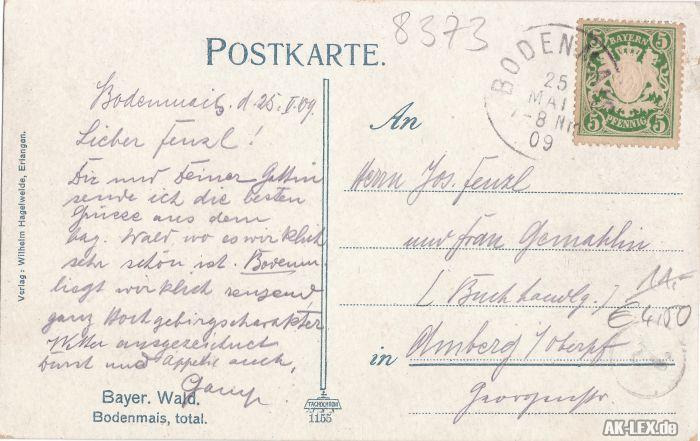 8373
POSTKARTE.
BODENMAIS
25
MAI
7-8 Nm
09
BAYERN
5 5
5 PFENNIG 5
Bodenmais, d. 25. V. 09.
Lieber Fenzl!
Dir und Deiner Gattin
sende ich die besten
Grüsse aus dem
bay. Wald, wo es wirklich
sehr schön ist. Bodenm
liegt wirklich reizend,
ganz Hochgebirgscharakter,
Wetter ausgezeichnet
Durst und Appetit auch,
An
Herrn Jos Fenzl
und Frau Gemahlin
(Buchhandlg.)
in Amberg / Oberpf
Georgenstr.
14,-
€ 4,50
Verlag: Wilhelm Hagelweide, Erlangen.
Bayer. Wald.
Bodenmais, total.
TACHOCHROM
1155
AK-LEX.de